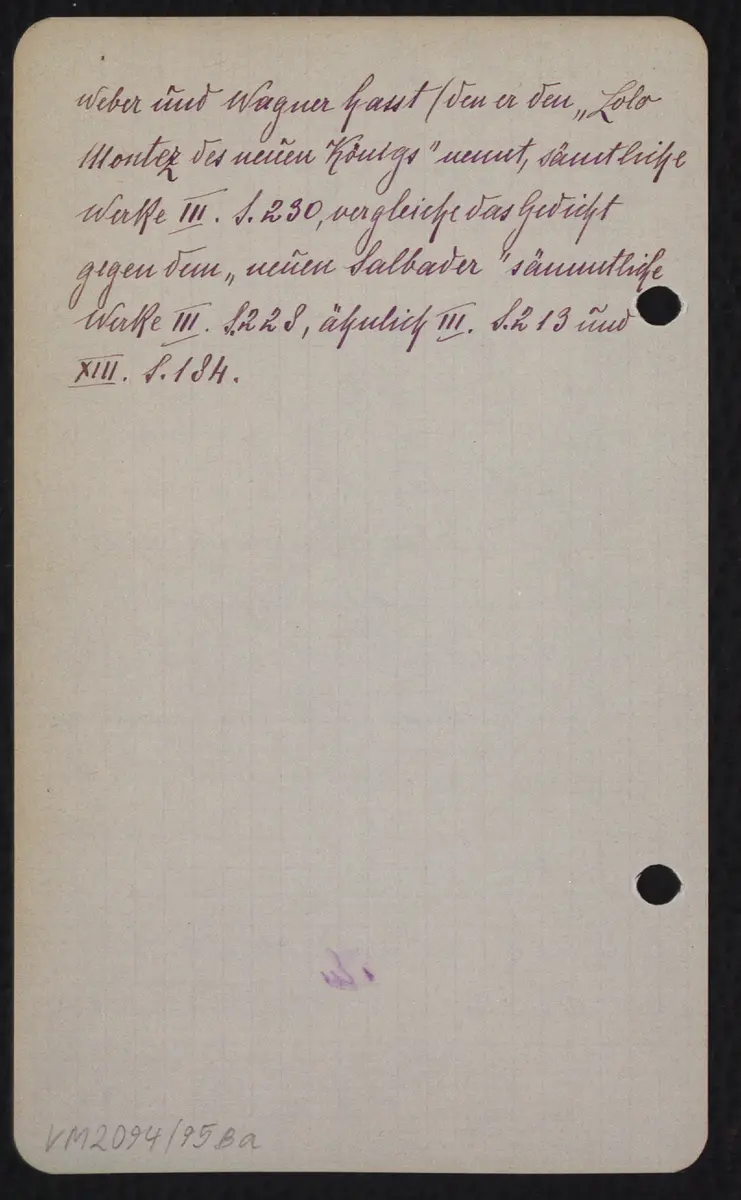 Weber und Wagner hasst (den er den „Lolo
Montez des neuen Königs" nennt, sämtliche
Werke III. S. 230, vergleiche das Gedicht
gegen dem „neuen Salbader" sämmtliche
Werke III. S. 228, ähnlich III. S. 213 und
XIII. S. 184.
VM2094/95Ba